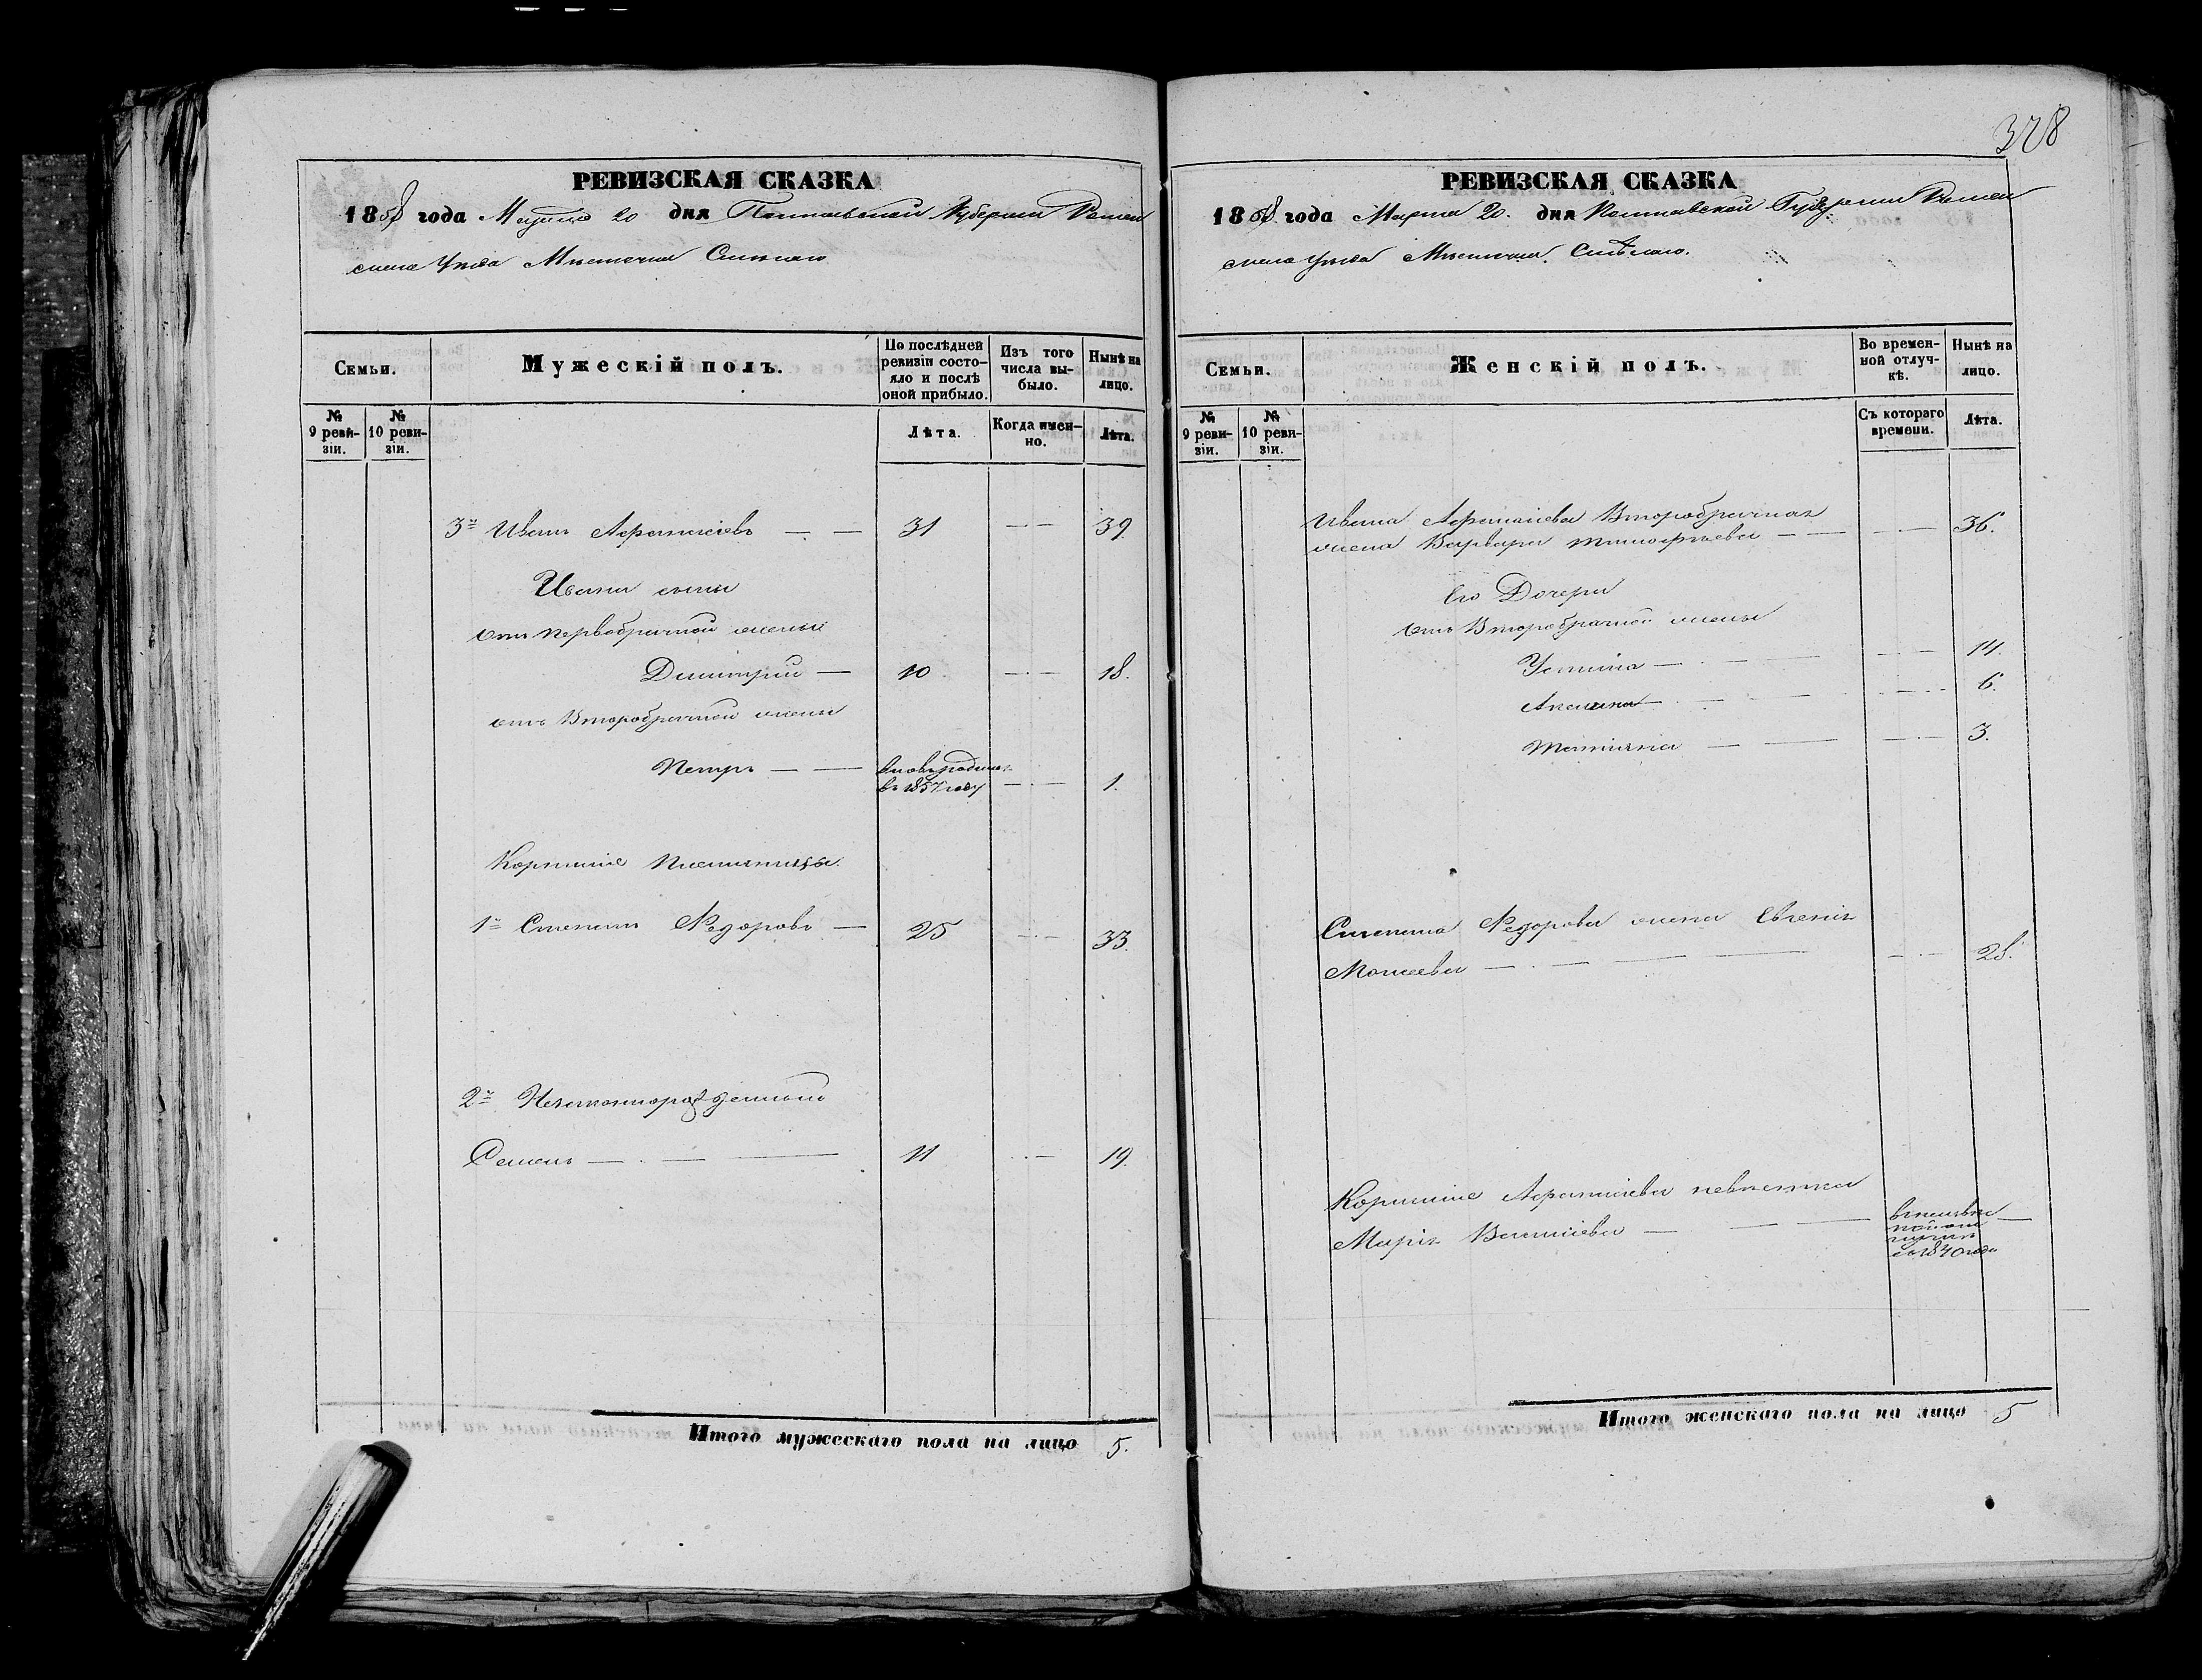 328
РЕВИЗСКАЯ СКАЗКА
1858 года Марта 20 дня Полтавской Губернии Ромен
скаго Уѣзда Мѣстечка Смѣлаго
Семьи.
Мужескій полъ.
По послѣдней ревизіи состояло и послѣ оной прибыло.
Изъ того числа выбыло.
Нынѣ на лицо.
№ 9 ревизіи.
№ 10 ревизіи.
Лѣта.
Когда именно.
Лѣта.
3й Иванъ Афанасіевъ — — 31 — — 39.
Ивана сыны
отъ первобрачной жены
Димитрий — 10 — — 18.
отъ Второбрачной жены
Петръ — — вновьрожден
въ 1857 году — — 1.
Корнилія Племянницы.
1й Степанъ Федоровъ — 25 — — 33.
2й Незаконнорожденный
Семенъ — — — 11 — — 19.
Итого мужескаго пола на лицо 5.
РЕВИЗСКАЯ СКАЗКА
1858 года Марта 20. дня Полтавской Губерніи Ромен
скаго Уѣзда Мѣстечка Смѣлаго.
Семьи.
Женскій полъ.
Во временной отлучкѣ.
Нынѣ на лицо.
№ 9 ревизіи.
№ 10 ревизіи.
Съ котораго времени.
Лѣта.
Ивана Афанасіева Второбрачная
жена Варвара Тимофѣева — — — — 36.
Его Дочери
отъ Второбрачной жены
Устина — — — — — 14.
Акелина — — — — 6.
Татіяна — — — — 3.
Степана Федорова жена Евгенія
Моисеева — — — — — — 28.
Корнилія Афанасіева невѣстка
Марія Василіева — — —
съ 1840 года —
Итого женскаго пола на лицо 5